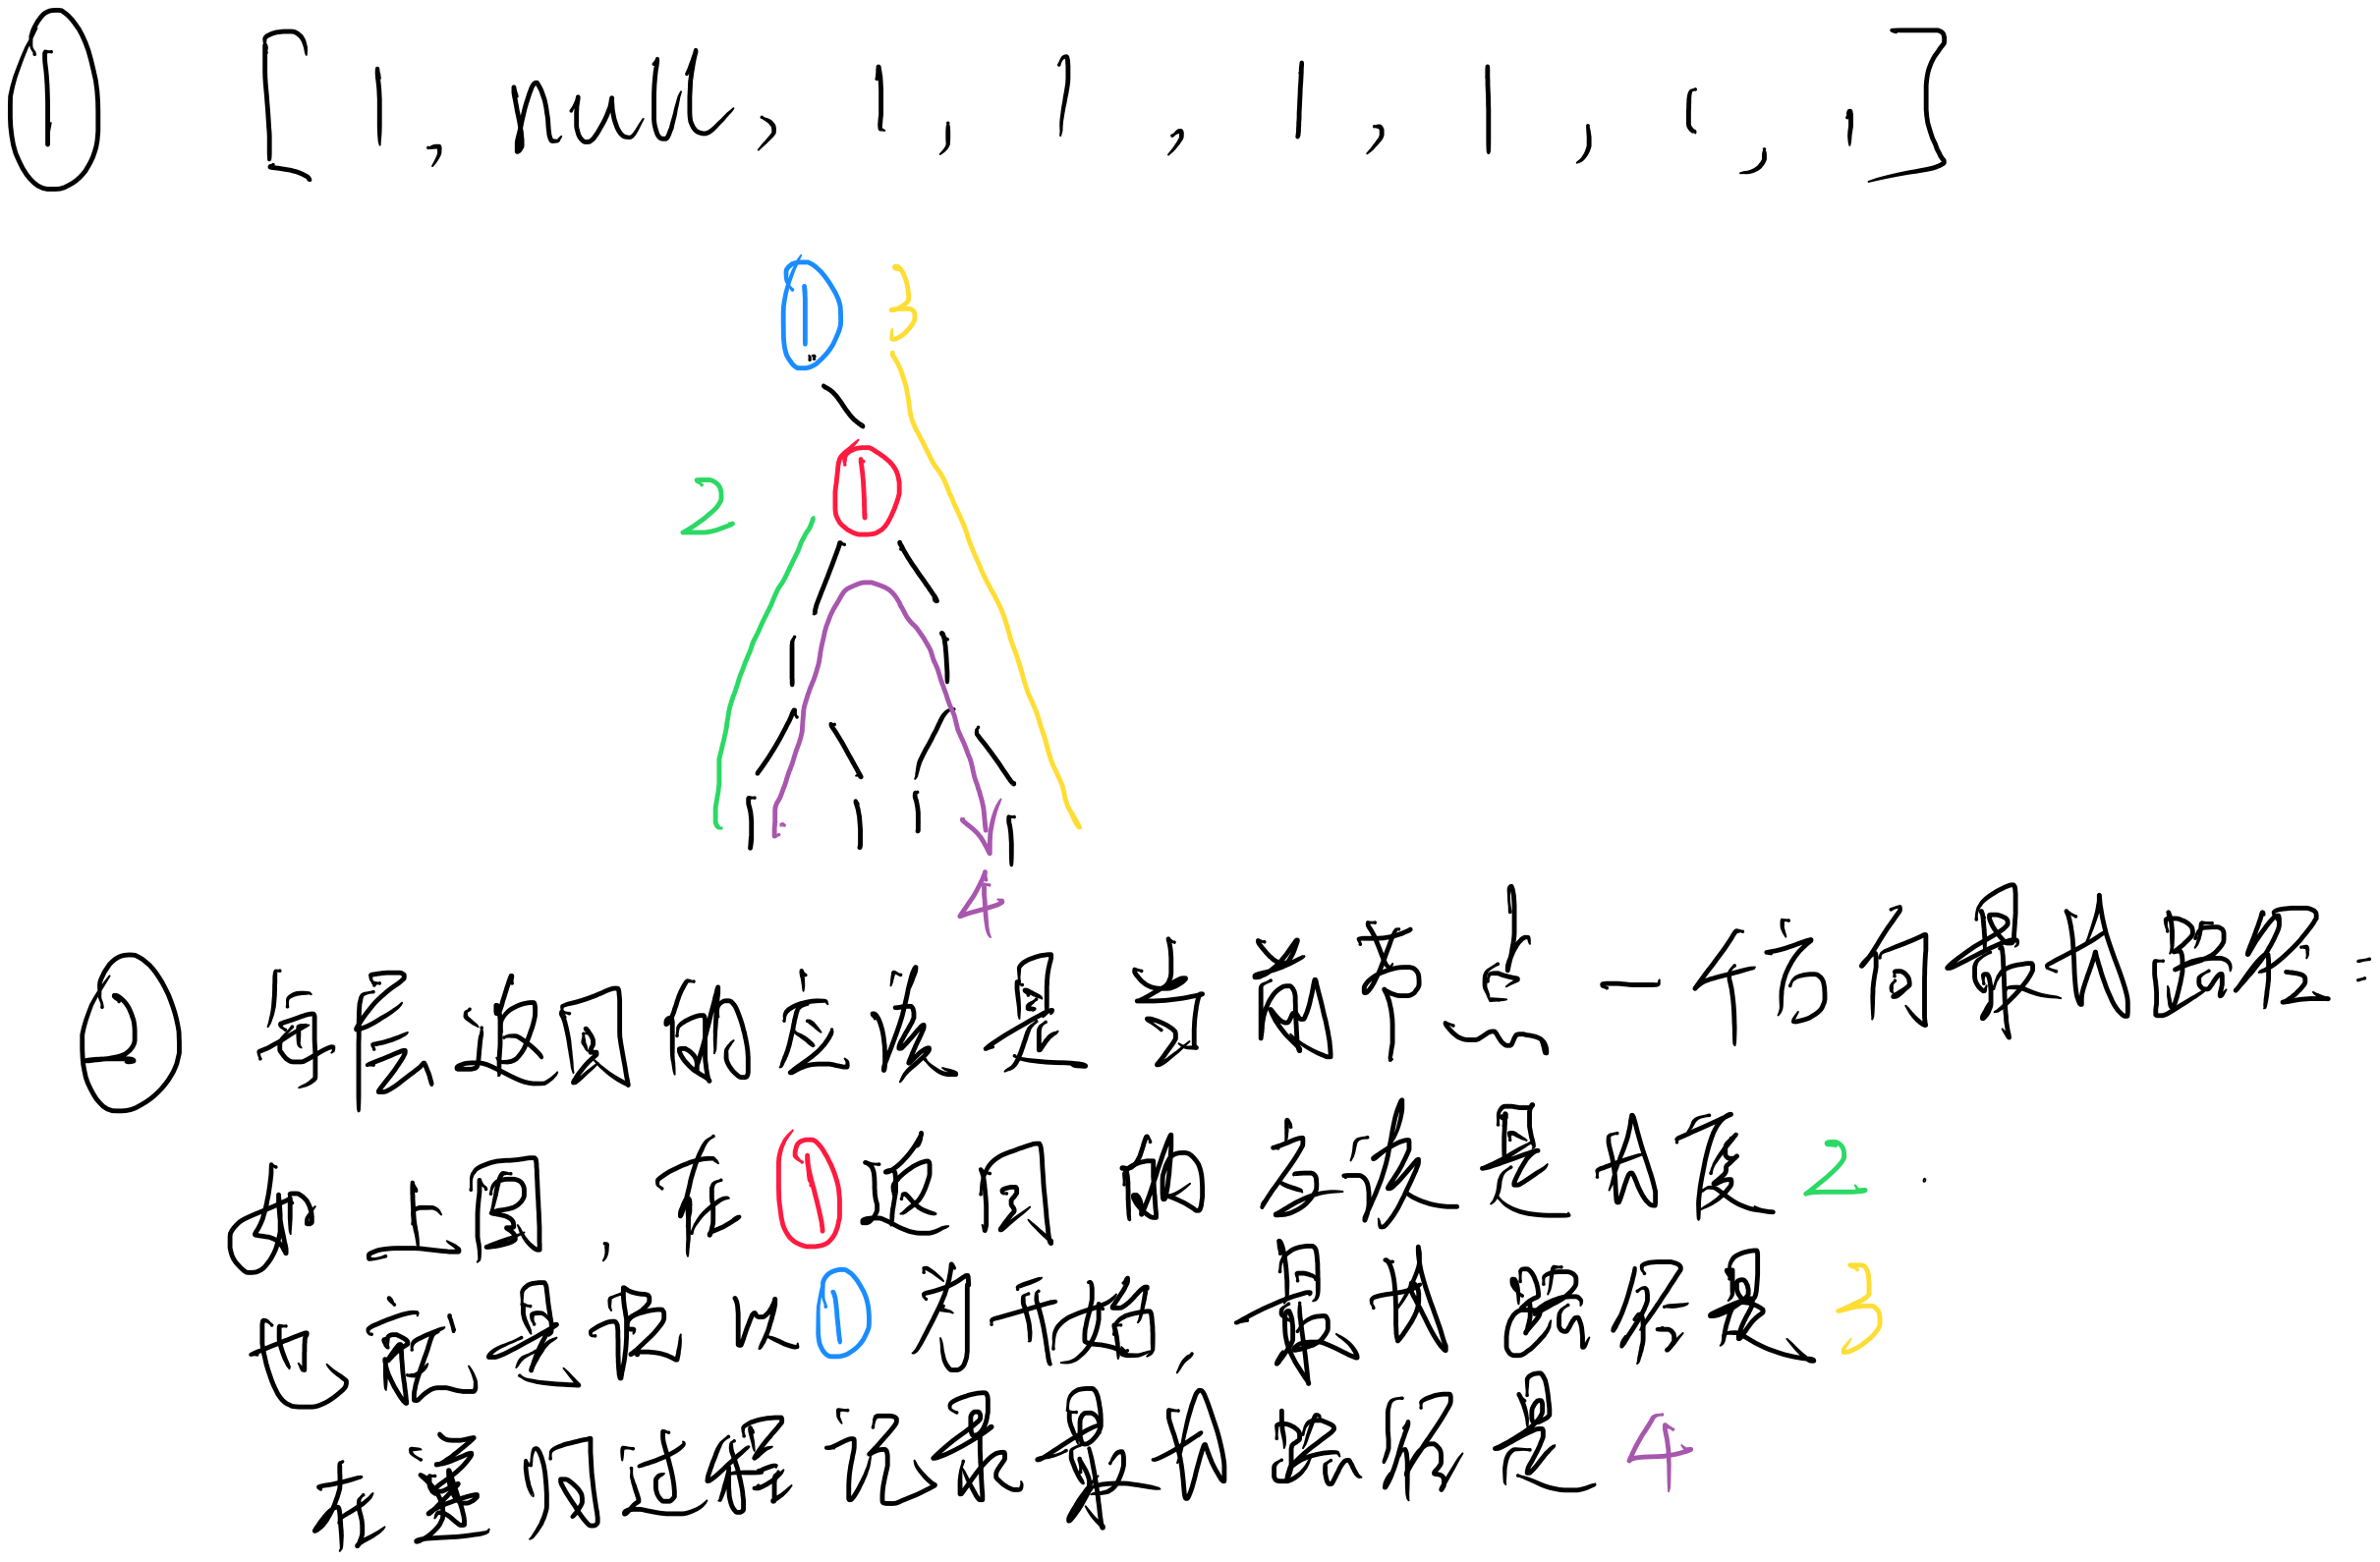 ① [1, null, 1, 1, 1, 1, 1, 1]
① 3
2 ①
1 1
1 1 1 1
4
② 每层返回的应该是当前节点一个方向最长路径:
如上图, 在①返回的应该是长度2.
也就是说以①为开始, 最长路径是3
在遍历过程记录最长路径是4